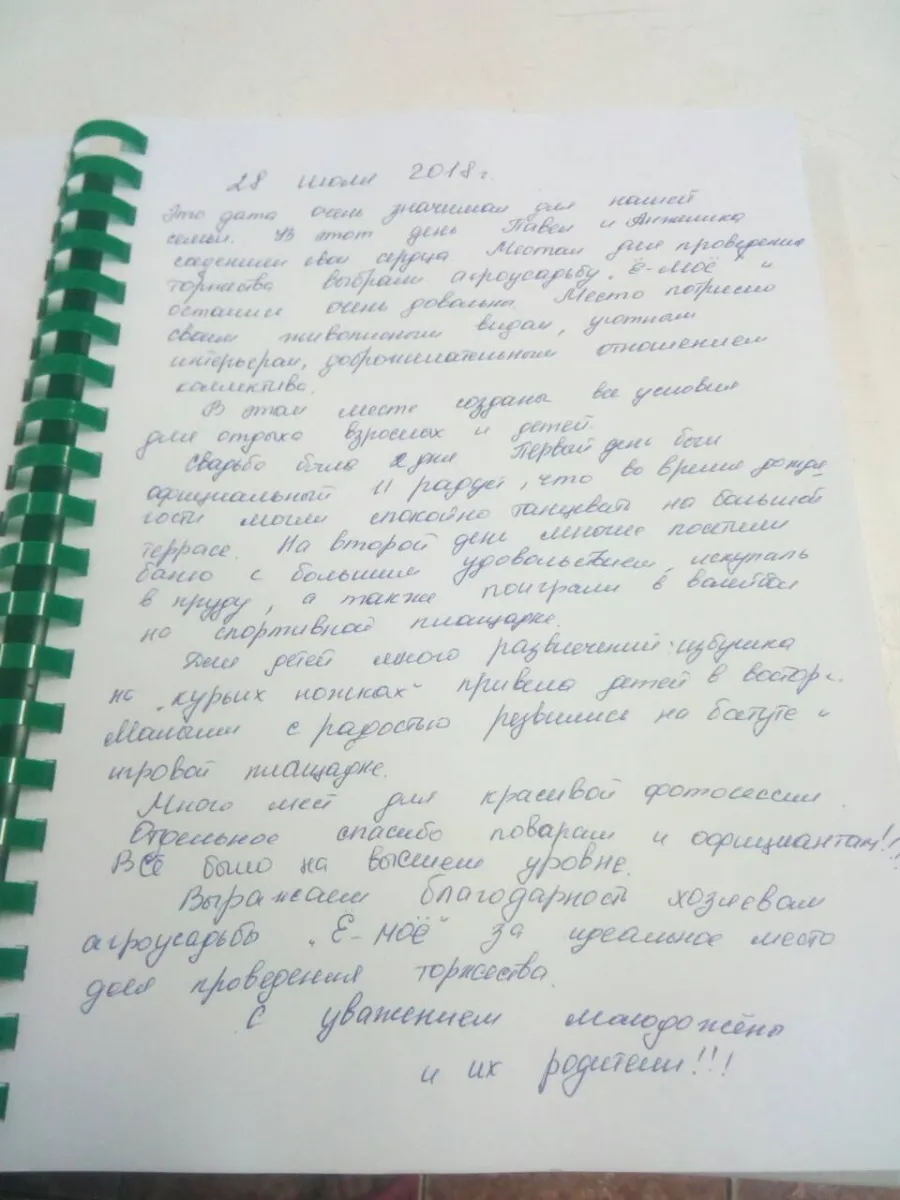 28 июля 2018 г.
Это дата очень значимая для нашей
семьи. В этот день Павел и Анжелика
соединили свои сердца. Местом для проведения
торжества выбрали агроусадьбу "Ё-моё" и
остались очень довольны. Место потрясло
своим живописным видом, уютным
интерьером, доброжелательным отношением
коллектива.
В этом месте созданы все условия
для отдыха взрослых и детей.
Свадьба была 2 дня. Первый день был
официальный И радует, что во время дождя
гости могли спокойно танцевать на большой
террасе. На второй день многие посетили
баню с большим удовольствием, искупались
в пруду, а также поиграли в волейбол
на спортивной площадке.
Для детей много развлечений: избушка
на "курьих ножках" привела детей в восторг.
Малыши с радостью резвились на батуте и
игровой площадке.
Много мест для красивой фотосессии.
Отдельное спасибо поварам и официантам!!
Всё было на высшем уровне.
Выражаем благодарность хозяевам
агроусадьбы "Ё-моё" за идеальное место
для проведения торжества.
С уважением молодожёны
и их родители!!!